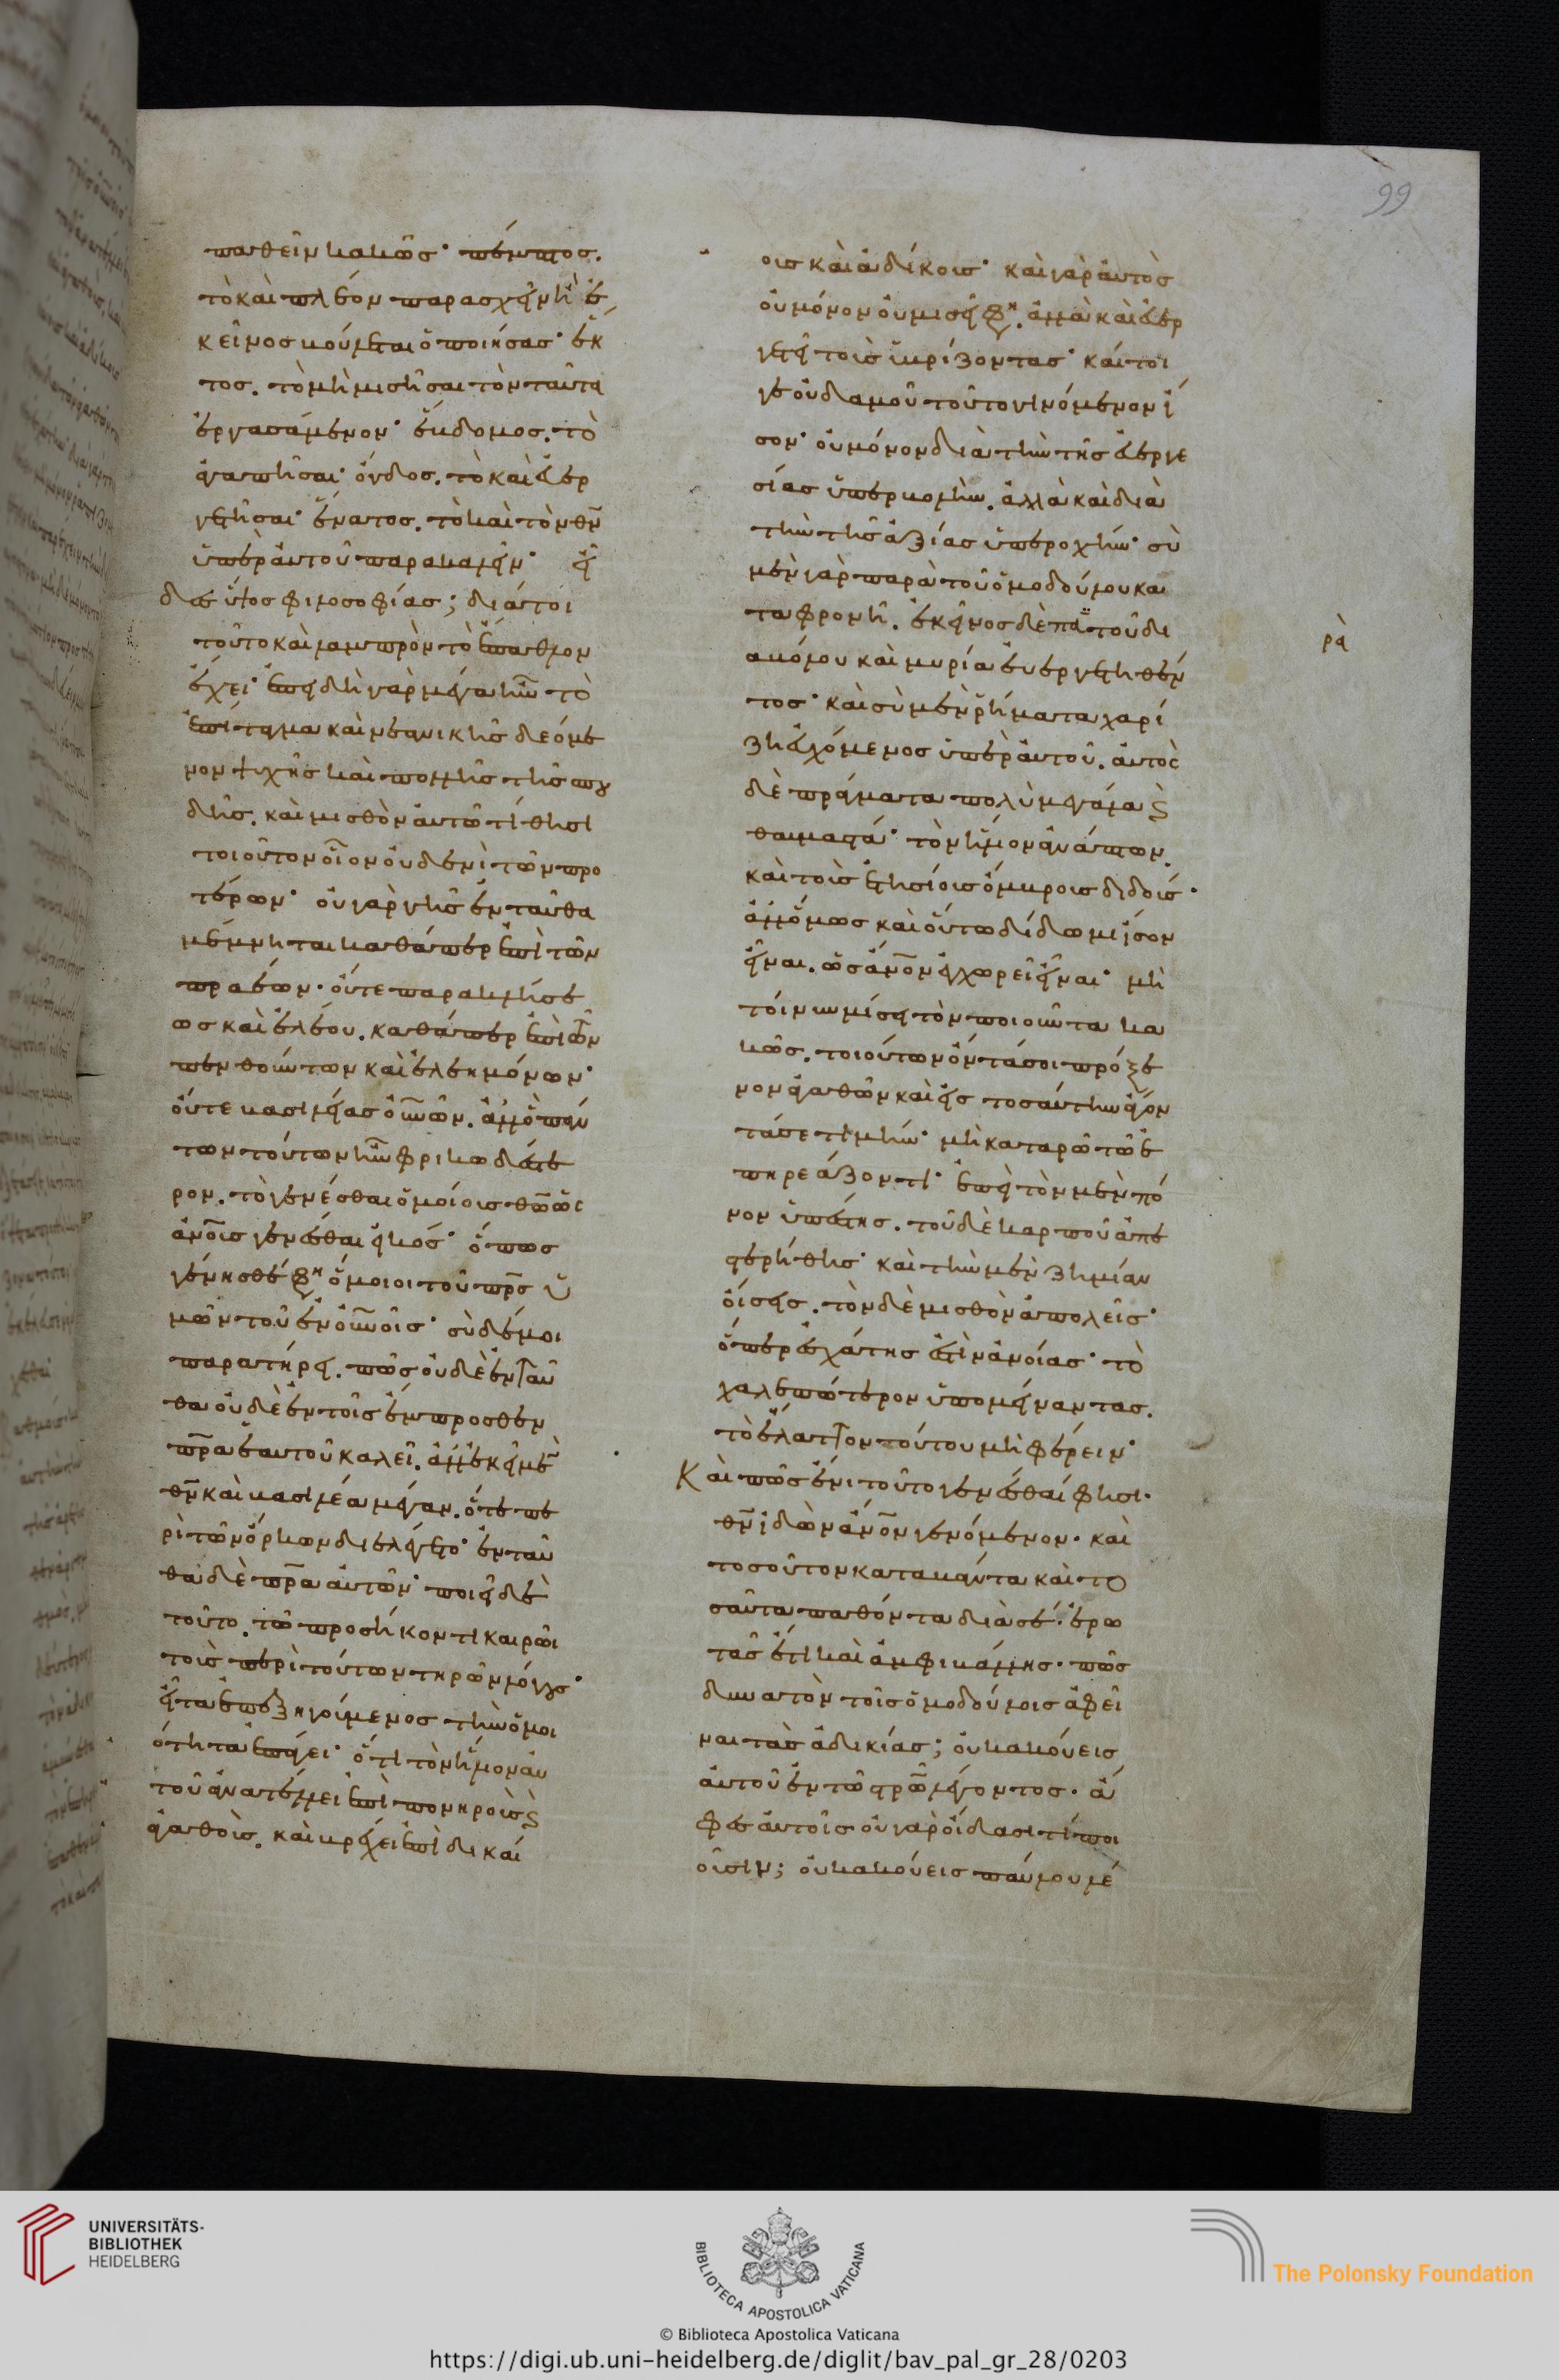 99
παθεῖν κακῶσ· πέμπτοσ.
τὸ καὶ πλέον παρασχεῖν ἢ ἐ
κεῖνοσ βούλεται ὁ ποιήσασ· ἕκ
τοσ. τὸ μὴ μισῆσαι τὸν ταῦτα
ἐργασάμενον· ἕβδομοσ. τὸ
ἀγαπῆσαι· ὄγδοσ. τὸ καὶ εὐερ
γετῆσαι· ἔνατοσ. τὸ καὶ τὸν θν̅
ὑπὲρ αὐτοῦ παρακαλεῖν· εἶ
δεσ ὕψοσ φιλοσοφίασ; διάτοι
τοῦτο καὶ λαμπρὸν τὸ ἔπαθλον
ἔχει· ἐπειδὴ γὰρ μέγα ἦν τὸ
ἐπίταγμα καὶ νεανικῆσ δεόμε
νον ψυχῆσ καὶ πολλῆσ τῆσ σπου
δῆσ. καὶ μισθὸν αὐτῶ τίθησι
τοιοῦτον οἷον οὐδενὶ τῶν προ
τέρων· οὐ γὰρ γῆσ ἐνταῦθα
μέμνηται καθάπερ ἐπὶ τῶν
πραέων· οὔτε παρακλήσε
ωσ καὶ ἐλέου. καθάπερ ἐπὶ τῶν
πενθούντων καὶ ἐλεημόνων·
οὔτε βασιλείασ οὐνῶν. ἀλλ' ὃ πάν
των τούτων ἦν φρικωδέστε
ρον. τὸ γενέσθαι ὁμοίοισ θῶ ὡσ
ἀνοισ γενέσθαι εἰκόσ· ὅπωσ
γένησθέ φη ὅμοιοι τοῦ πρσ ὑ
μῶν τοῦ ἐν οὐνοῖσ· σὺ δέ μοι
παρατήρει. πῶσ οὐδὲ ἐνταῦ
θα οὐδὲ ἐν τοῖσ ἔμπροσθεν
πρα ἑαυτοῦ καλεῖ. ἀλλ' ἐκεῖ μὲν
θν̅ καὶ βασιλέα μέγαν. ὅτε πε
ρὶ τῶν ὅρκων διελέγετο· ἐνταῦ
θα δὲ πρα αὐτῶν· ποιεῖ δὲ
τοῦτο. τῶ προσήκοντι καιρῶι
τοὺσ περὶ τούτων τηρῶν λόγουσ·
εἶτα ἐπεξηγούμενοσ τὴν ὁμοι
ότητα ἐπάγει· ὅτι τὸν ἥλιον αὐ
τοῦ ἀνατέλλει ἐπὶ πονηροὺσ ϛ
ἀγαθοὺσ. καὶ βρέχει ἐπὶ δικαί
οισ καὶ ἀδίκοισ· καὶ γὰρ αὐτὸσ
οὐ μόνον οὐ μισεῖ φη. ἀλλὰ καὶ εὐερ
γετεῖ τοὺσ ὑβρίζοντασ· καίτοι
γε οὐδαμοῦ τοῦτο γινόμενον ἴ
σον· οὐ μόνον διὰ τὴν τῆσ εὐεργε
σίασ ὑπερβολὴν. ἀλλὰ καὶ διὰ
τὴν τῆσ ἀξίασ ὑπεροχήν· σὺ
μὲν γὰρ παρὰ τοῦ ὁμοδούλου κα
ταφρονῆ. ἐκεῖνοσ δὲ πα τοῦ δι
ρὰ
ακόλου καὶ μυρία εὐεργετηθέν
τοσ· καὶ σὺ μὲν ῥήματα χαρί
ζη εὐχόμενοσ ὑπὲρ αὐτοῦ. αὐτὸσ
δὲ πράγματα πολὺ μεγάλα ϛ
θαυμαστά· τὸν ἥλιον ἀνάπτων.
καὶ τοὺσ ἐτησίουσ ὄμβρουσ διδούσ·
ἀλλ' ὅμωσ καὶ οὕτω δίδωμι ἴσον
εἶναι. ὡσ ἀνον ἐγχωρεῖ εἶναι· μὴ
τοίνυν μίσει τὸν ποιοῦντα κα
κῶσ. τοιούτων ὄντα σοι πρόξε
νον ἀγαθῶν καὶ εἰσ τοσαύτην ἄγον
τά σε τιμήν· μὴ καταρῶ τῶ ἐ
πηρεάζοντι· ἐπεὶ τὸν μὲν πό
νον ὑπέστησ. τοῦ δὲ καρποῦ ἀπε
στερήθησ· καὶ τὴν μὲν ζημίαν
οἴσεισ. τὸν δὲ μισθὸν ἀπολεῖσ·
ὅπερ ἐσχάτησ ἐστὶν ἀνοίασ· τὸ
χαλεπώτερον ὑπομείναντασ.
τὸ ἔλαττον τούτου μὴ φέρειν·
Καὶ πῶσ ἔνι τοῦτο γενέσθαί φησι·
θν̅ ἰδὼν ἄνον γενόμενον· καὶ
τοσοῦτον καταβάντα καὶ το
σαῦτα παθόντα διὰ σέ· ἐρω
τᾶσ ἔτι καὶ ἀμφιβάλλησ· πῶσ
δυνατὸν τοῖσ ὁμοδούλοισ ἀφεῖ
ναι τὰσ ἀδικίασ; οὐκ ἀκούεισ
αὐτοῦ ἐν τῶ στρῶ λέγοντοσ· ἄ
φεσ αὐτοῖσ οὐ γὰρ οἴδασι τί ποι
οῦσιν; οὐκ ἀκούεισ παύλου λέ
UNIVERSITÄTS-
BIBLIOTHEK
HEIDELBERG
BIBLIOTECA APOSTOLICA VATICANA
The Polonsky Foundation
© Biblioteca Apostolica Vaticana
https://digi.ub.uni-heidelberg.de/diglit/bav_pal_gr_28/0203